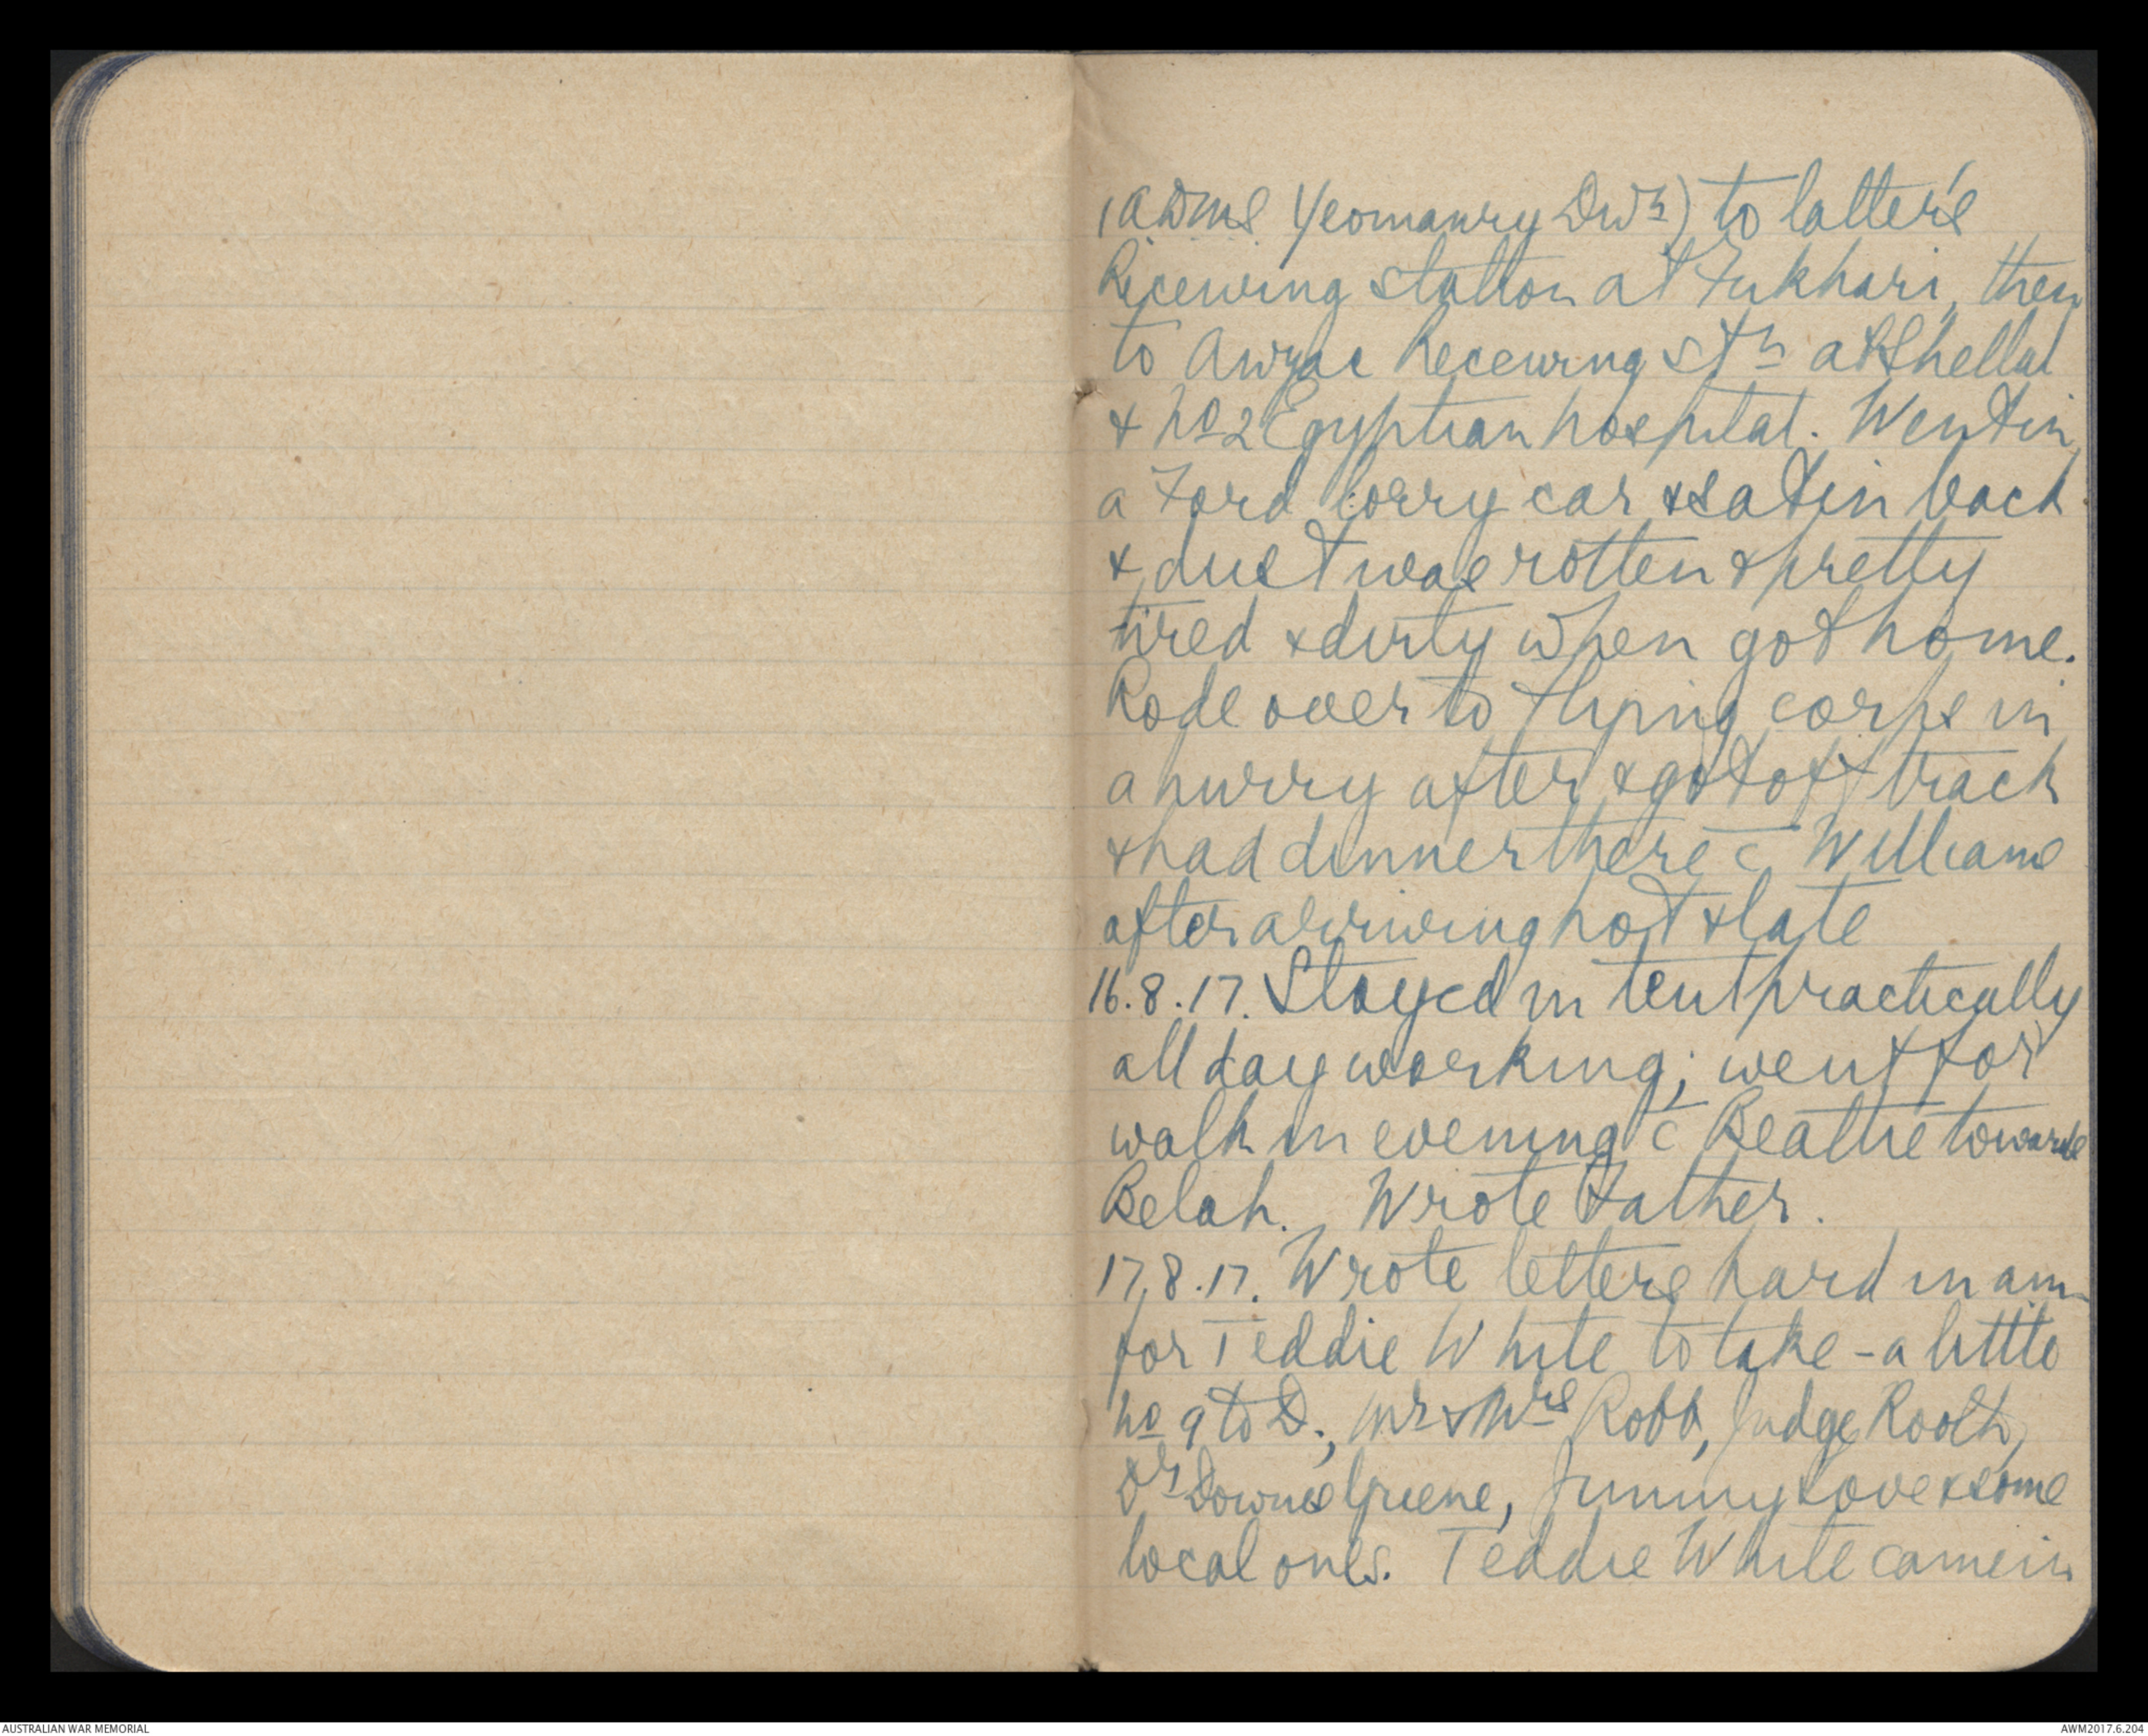 (ADMS Yeomanry Divn) to latter's
Receiving station at Fukhari, then
to Anzac Receiving Stn at Shellal
& No 2 Egyptian hospital. Went in
a Ford lorry car & sat in back
& dust was rotten & pretty
tired & dirty when got home.
Rode over to flying corps in
a hurry after & got off track
& had dinner there c̄ Williams
after arriving hot & late
16.8.17. Stayed in tent practically
all day working; went for
walk in evening c̄ Beattie towards
Belah. Wrote Father.
17.8.17. Wrote letters hard in am
for Teddie White to take - a little
No 9 to D., Mr & Mrs Robb, Judge Rooth,
Dr Downes Greene, Jimmy Love & some
local ones. Teddie White came in
AUSTRALIAN WAR MEMORIAL
AWM2017.6.204